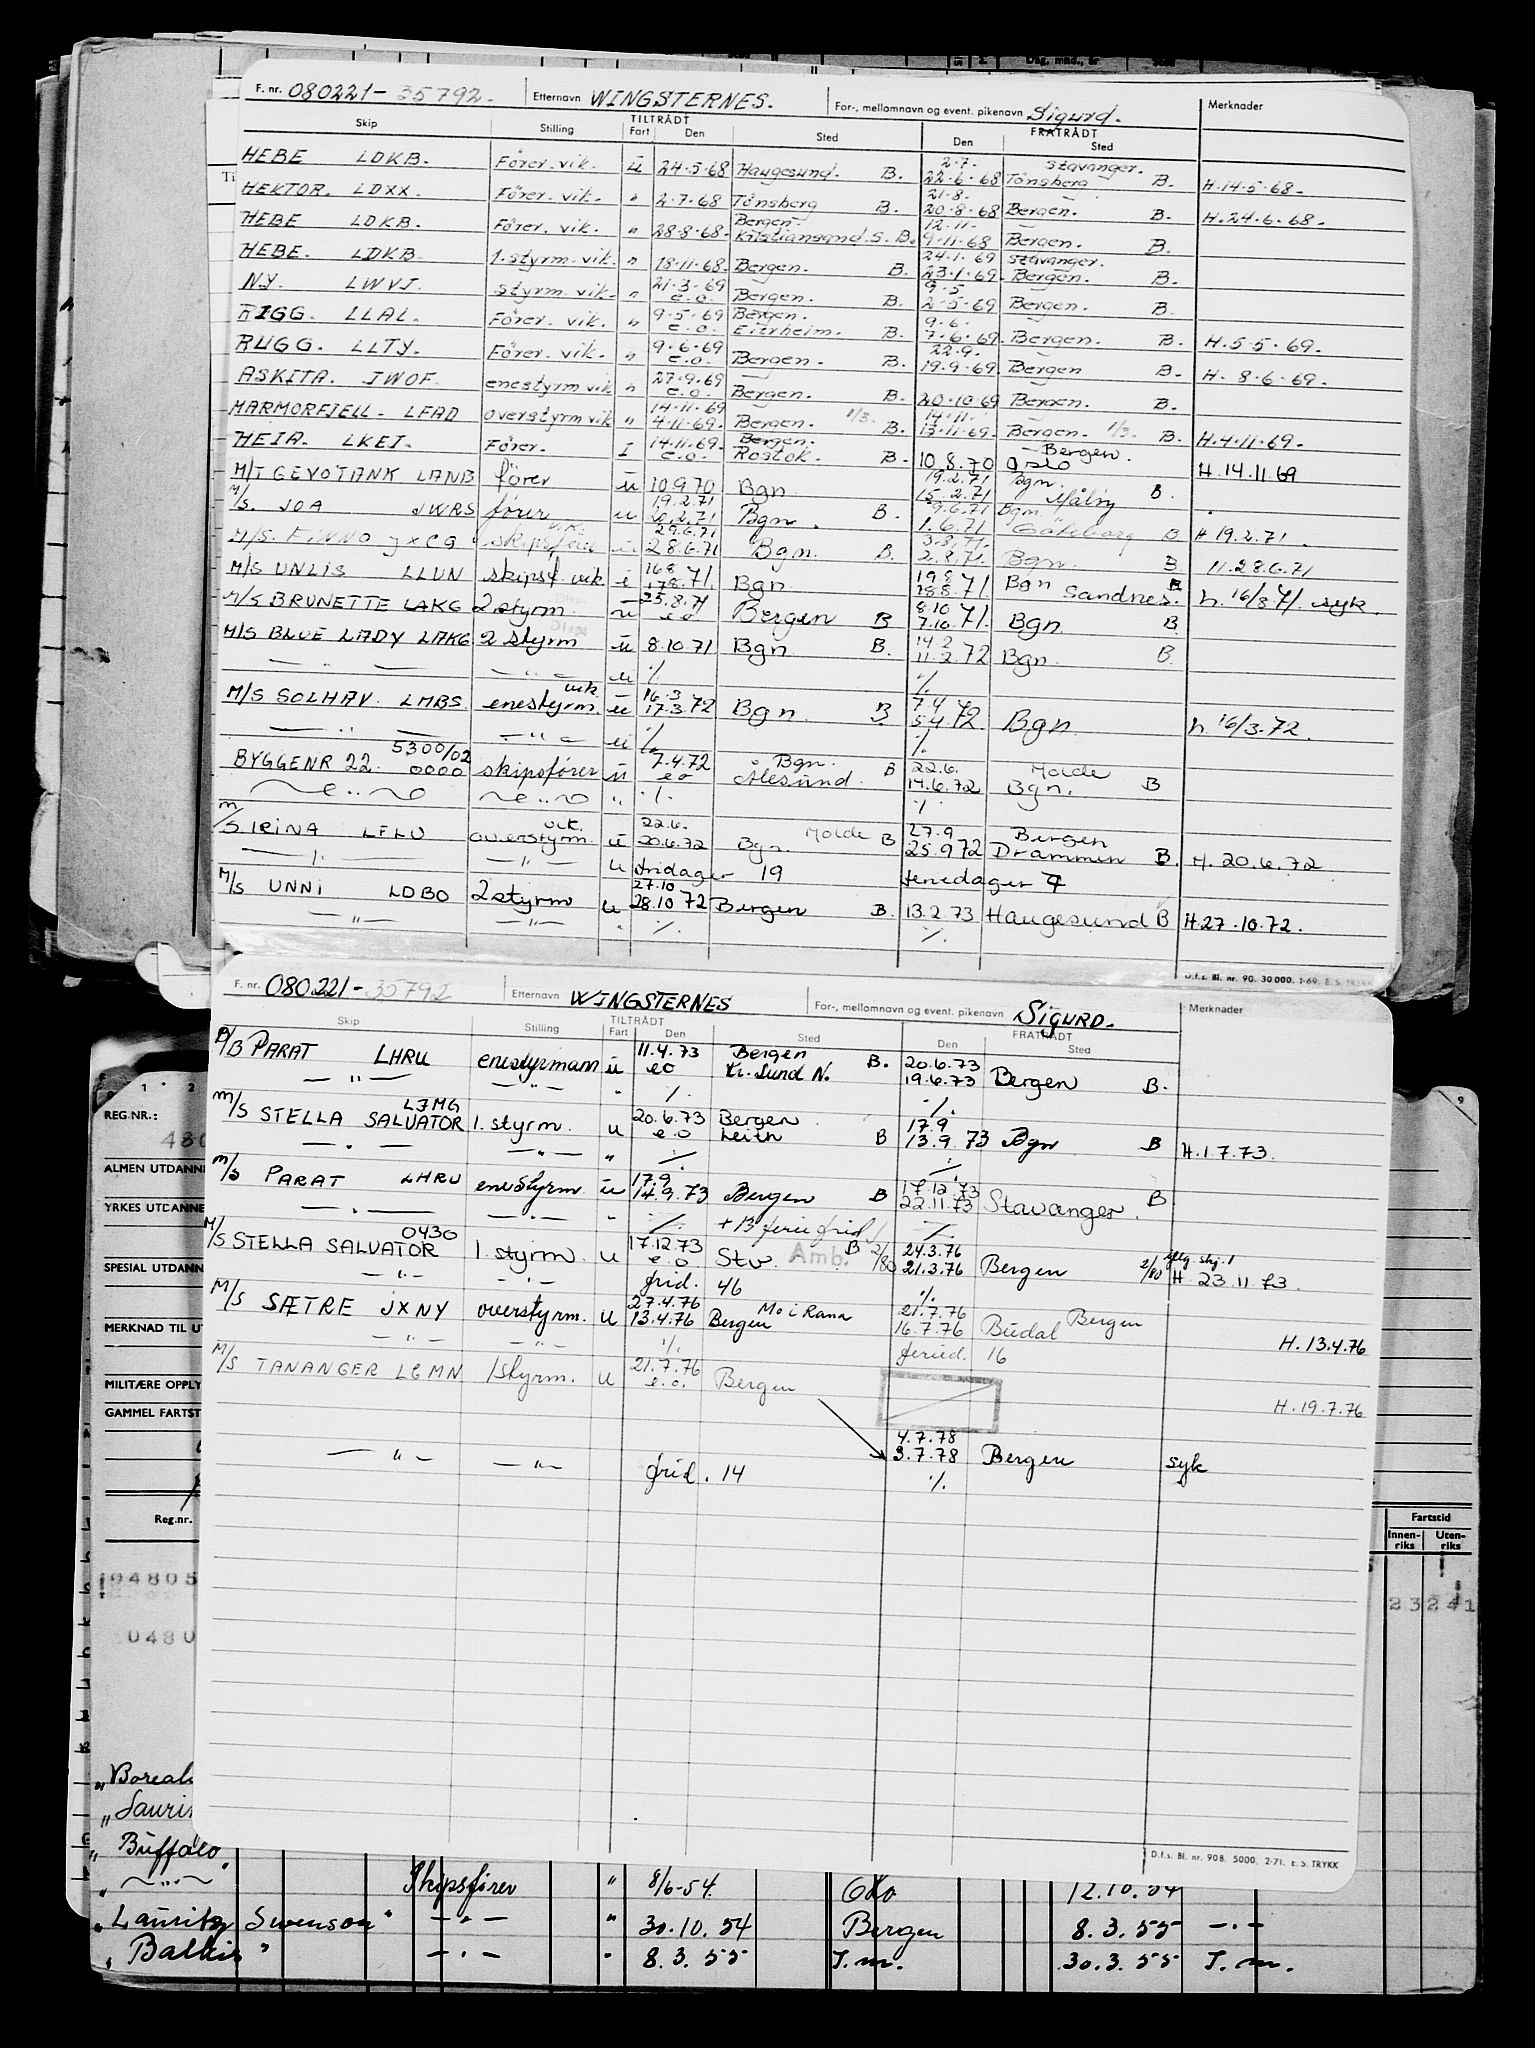 F. nr. 080221-35792. Etternavn WINGSTERNES. For-, mellomnavn og event. pikenavn Sigurd. Merknader
Skip Stilling TILTRÅDT Fart Den Sted FRATRÅDT Den Sted
HEBE LDKB. Förer. vik. u 24.5.68 Haugesund. B. 2.7. 22.6.68 Stavanger. Tönsberg B. H.14.5.68.
HEKTOR. LDXX. Förer. vik. " 2.7.68 Tönsberg B. 21.8. 20.8.68 Bergen. B. H.24.6.68.
HEBE LDKB. Förer. vik. " 28.8.68. Bergen. Kristiansand.S. B. 12.11. 9.11.68 Bergen. B.
HEBE. LDKB. 1.styrm.vik. " 18.11.68. Bergen. B. 24.1.69 23.1.69. Stavanger. Bergen. B.
NY. LWVJ. styrm.vik. " 21.3.69 e.o. Bergen. B. 9.5 2.5.69 Bergen. B.
RIGG. LLAL. Förer. vik. " 9.5.69 e.o. Bergen. Eitrheim. B. 9.6. 7.6.69. Bergen. B. H.5.5.69.
RUGG. LLTY. Förer. vik. " 9.6.69 e.o. Bergen. B. 22.9. 19.9.69. Bergen B. H. 8.6.69.
ASKITA. JWOF. enestyrm vik " 27.9.69 e.o. Bergen. B. 20.10.69 Bergen. B.
MARMORFJELL. LFAD overstyrm vik " 14.11.69 4.11.69. Bergen. 1/3. B. 14.11. 13.11.69. Bergen. 1/3. B. H.4.11.69.
HEIA. LKEI. Förer. I 14.11.69. e.o. Bergen. Rostok. B. 10.8.70 Bergen. Oslo H.14.11.69
M/T GEVOTANK LANB förer u 10.9.70 Bgn 19.2.71 15.2.71 Bgn. Måløy B.
M/S. JOA JWRS förer u 19.2.71 20.2.71 Bgn. B. 29.6.71 1.6.71 Bgn. Göteborg B H 19.2.71.
M/S. FINNO JXCQ skipsförer vik. u 29.6.71 28.6.71 Bgn. B. 3.8.71. 2.8.71. Bgn. B H.28.6.71
M/S UNLIS LLUN skipsf. vik i 16.8 17.8.71. Bgn 19.8 18.8.71 Bgn Sandnes. B h. 16/8 71. syk.
M/S BRUNETTE LAKG 2 styrm. Disp. u 25.8.71 e o Bergen B 8.10 7.10.71. Bgn B
M/S BLUE LADY LAKG 2 styrm Disp u 8.10.71 Bgn B. 14.2 11.2.72 Bgn B.
— " — — " — u ·/. ·/.
M/S SOLHAV. LMBS. enestyrm. vik. u 16.3 17.3.72 Bgn. B 7.4 5.4.72 Bgn. h. 16/3.72.
— " — — " — u ·/. ·/.
BYGGENR 22. 5300/02 0000 skipsförer u 7.4.72 e o Bgn. Ålesund. B 22.6. 14.6.72 Molde Bgn. B
— " — — " — " ·/. ·/.
M/S IRINA LFLU overstyrm. vik. u 22.6. 20.6.72 Bgn. Molde B 27.9 25.9.72 Bergen Drammen B. H. 20.6.72
— " — — " — u fridager 19 feriedager 7
M/S UNNI LDBO 2 styrm u 27.10 28.10.72 Bergen B. 13.2.73 Haugesund B H.27.10.72.
— " — — " — " ·/. ·/.
D.f.s. Bl. nr. 90. 30 000. 1-69. E. S. TRYKK
F. nr. 080221-35792 Etternavn WINGSTERNES For-, mellomnavn og event. pikenavn SIGURD. Merknader
Skip Stilling TILTRÅDT Fart Den Sted FRATRÅDT Den Sted
B/B PARAT LHRU enestyrmann u 11.4.73 e o Bergen Kr. Sund N. B. 20.6.73 19.6.73 Bergen B.
— " — — " — " ·/. ·/.
M/S STELLA SALVATOR LJMG 1. styrm. u 20.6.73 e.o Bergen Leith B 17.9 13.9.73 Bgn B H.1.7.73.
— " — — " — " ·/. ·/.
M/S PARAT LHRU enestyrm u 17.9. 14.9.73 Bergen B 17.12.73 22.11.73 Stavanger. B
— " — — " — " ·/. + 13 ferie frid ·/.
M/S STELLA SALVATOR 0430 1. styrm. u 17.12.73 e.o Stv. Amb. B 2/80 24.3.76 21.3.76 Bergen 2/80 iflg. skj. 1 H. 23.11.73.
— " — — " — frid. 46 ·/.
M/S SÆTRE JXNY overstyrm. u 27.4.76 13.4.76 Mo i Rana Bergen 21.7.76 16.7.76 Bergen Budal H.13.4.76
— " — — " — ·/. feried. 16
M/S TANANGER LGMN 1 styrm. u 21.7.76 e.o. Bergen H.19.7.76
4.7.78
— " — — " — 3.7.78 Bergen syk
frid. 14 ·/.
D.f.s. Bl. nr. 90B. 5000. 2-71. E. S. TRYKK
REG.NR.:
480
ALMEN UTDANNE
YRKES UTDANNE
SPESIAL UTDANN
MERKNAD TIL UT
MILITÆRE OPPLY
GAMMEL FARTST
Reg.nr. Fartstid
Innenriks Utenriks
04805 23241
0480
" Boreal
" Lauri
" Buffalo
" — " — Skipsförer " 8/6-54. Oslo 12.10.54
" Lauritz Swenson " — " — " 30.10.54 Bergen 8.3.55 — " —
" Balkis " — " — " 8.3.55 T.m. 30.3.55 T.m.